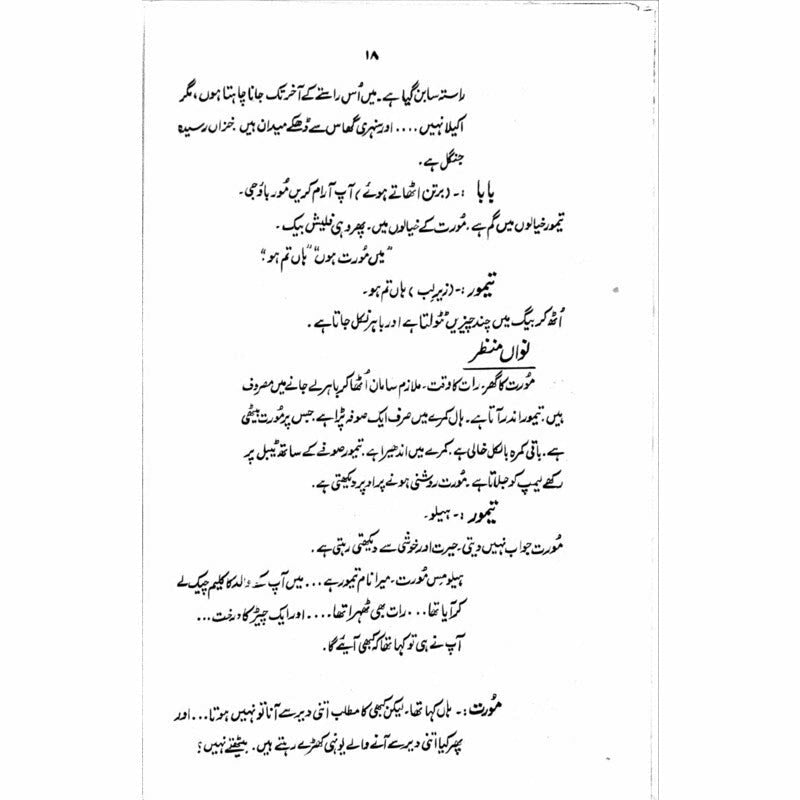 ۱۸
راستہ سا بن گیا ہے۔ میں اُس راستے کے آخر تک جانا چاہتا ہوں، مگر
اکیلا نہیں .... اور سنہری گھاس سے ڈھکے میدان ہیں خزاں رسیدہ
جنگل ہے۔
بابا :۔ (برتن اٹھاتے ہوئے) آپ آرام کریں مُور باؤجی۔
تیمور خیالوں میں گم ہے۔ مُورت کے خیالوں میں۔ پھر وہی فلیش بیک۔
"میں مُورت ہوں" "ہاں تم ہو۔"
تیمور :۔ (زیرِلب) ہاں تم ہو۔
اُٹھ کر بیگ میں چند چیزیں ٹٹولتا ہے اور باہر نکل جاتا ہے۔
نواں منظر
مُورت کا گھر۔ رات کا وقت۔ ملازم سامان اُٹھا کر باہر لے جانے میں مصروف
ہیں۔ تیمور اندر آتا ہے۔ ہال کمرے میں صرف ایک صوفہ پڑا ہے جس پر مُورت بیٹھی
ہے۔ باقی کمرہ بالکل خالی ہے۔ کمرے میں اندھیرا ہے۔ تیمور صوفے کے ساتھ ٹیبل پر
رکھے لیمپ کو جلاتا ہے۔ مُورت روشنی ہونے پر اوپر دیکھتی ہے۔
تیمور :۔ ہیلو۔
مُورت جواب نہیں دیتی۔ حیرت اور خوشی سے دیکھتی رہتی ہے۔
ہیلو مِس مُورت۔ میرا نام تیمور ہے ... میں آپ کے والد کا کلیم چیک لے
کر آیا تھا ... رات بھی ٹھہرا تھا .... اور ایک چیڑ کا درخت ...
آپ نے ہی تو کہا تھا کہ کبھی آیئے گا۔
مُورت :۔ ہاں کہا تھا۔ لیکن کبھی کا مطلب اتنی دیر سے آنا تو نہیں ہوتا ... اور
پھر کیا اتنی دیر سے آنے والے یونہی کھڑے رہتے ہیں۔ بیٹھتے نہیں؟